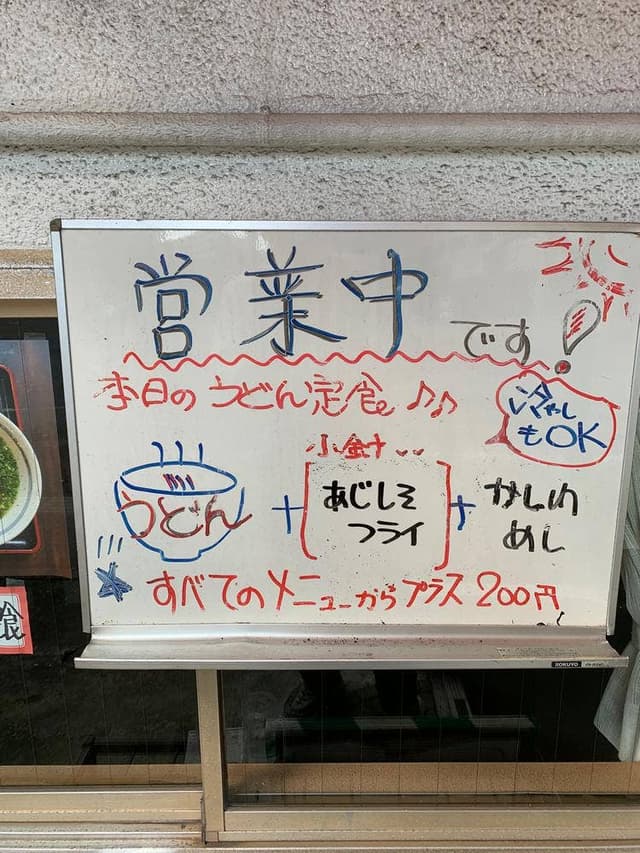 営業中です!
本日のうどん定食♪♪
冷やし
もOK
小鉢
うどん + [あじしそ
フライ] + かしわ
めし
すべてのメニューからプラス200円
KOKUYO
食